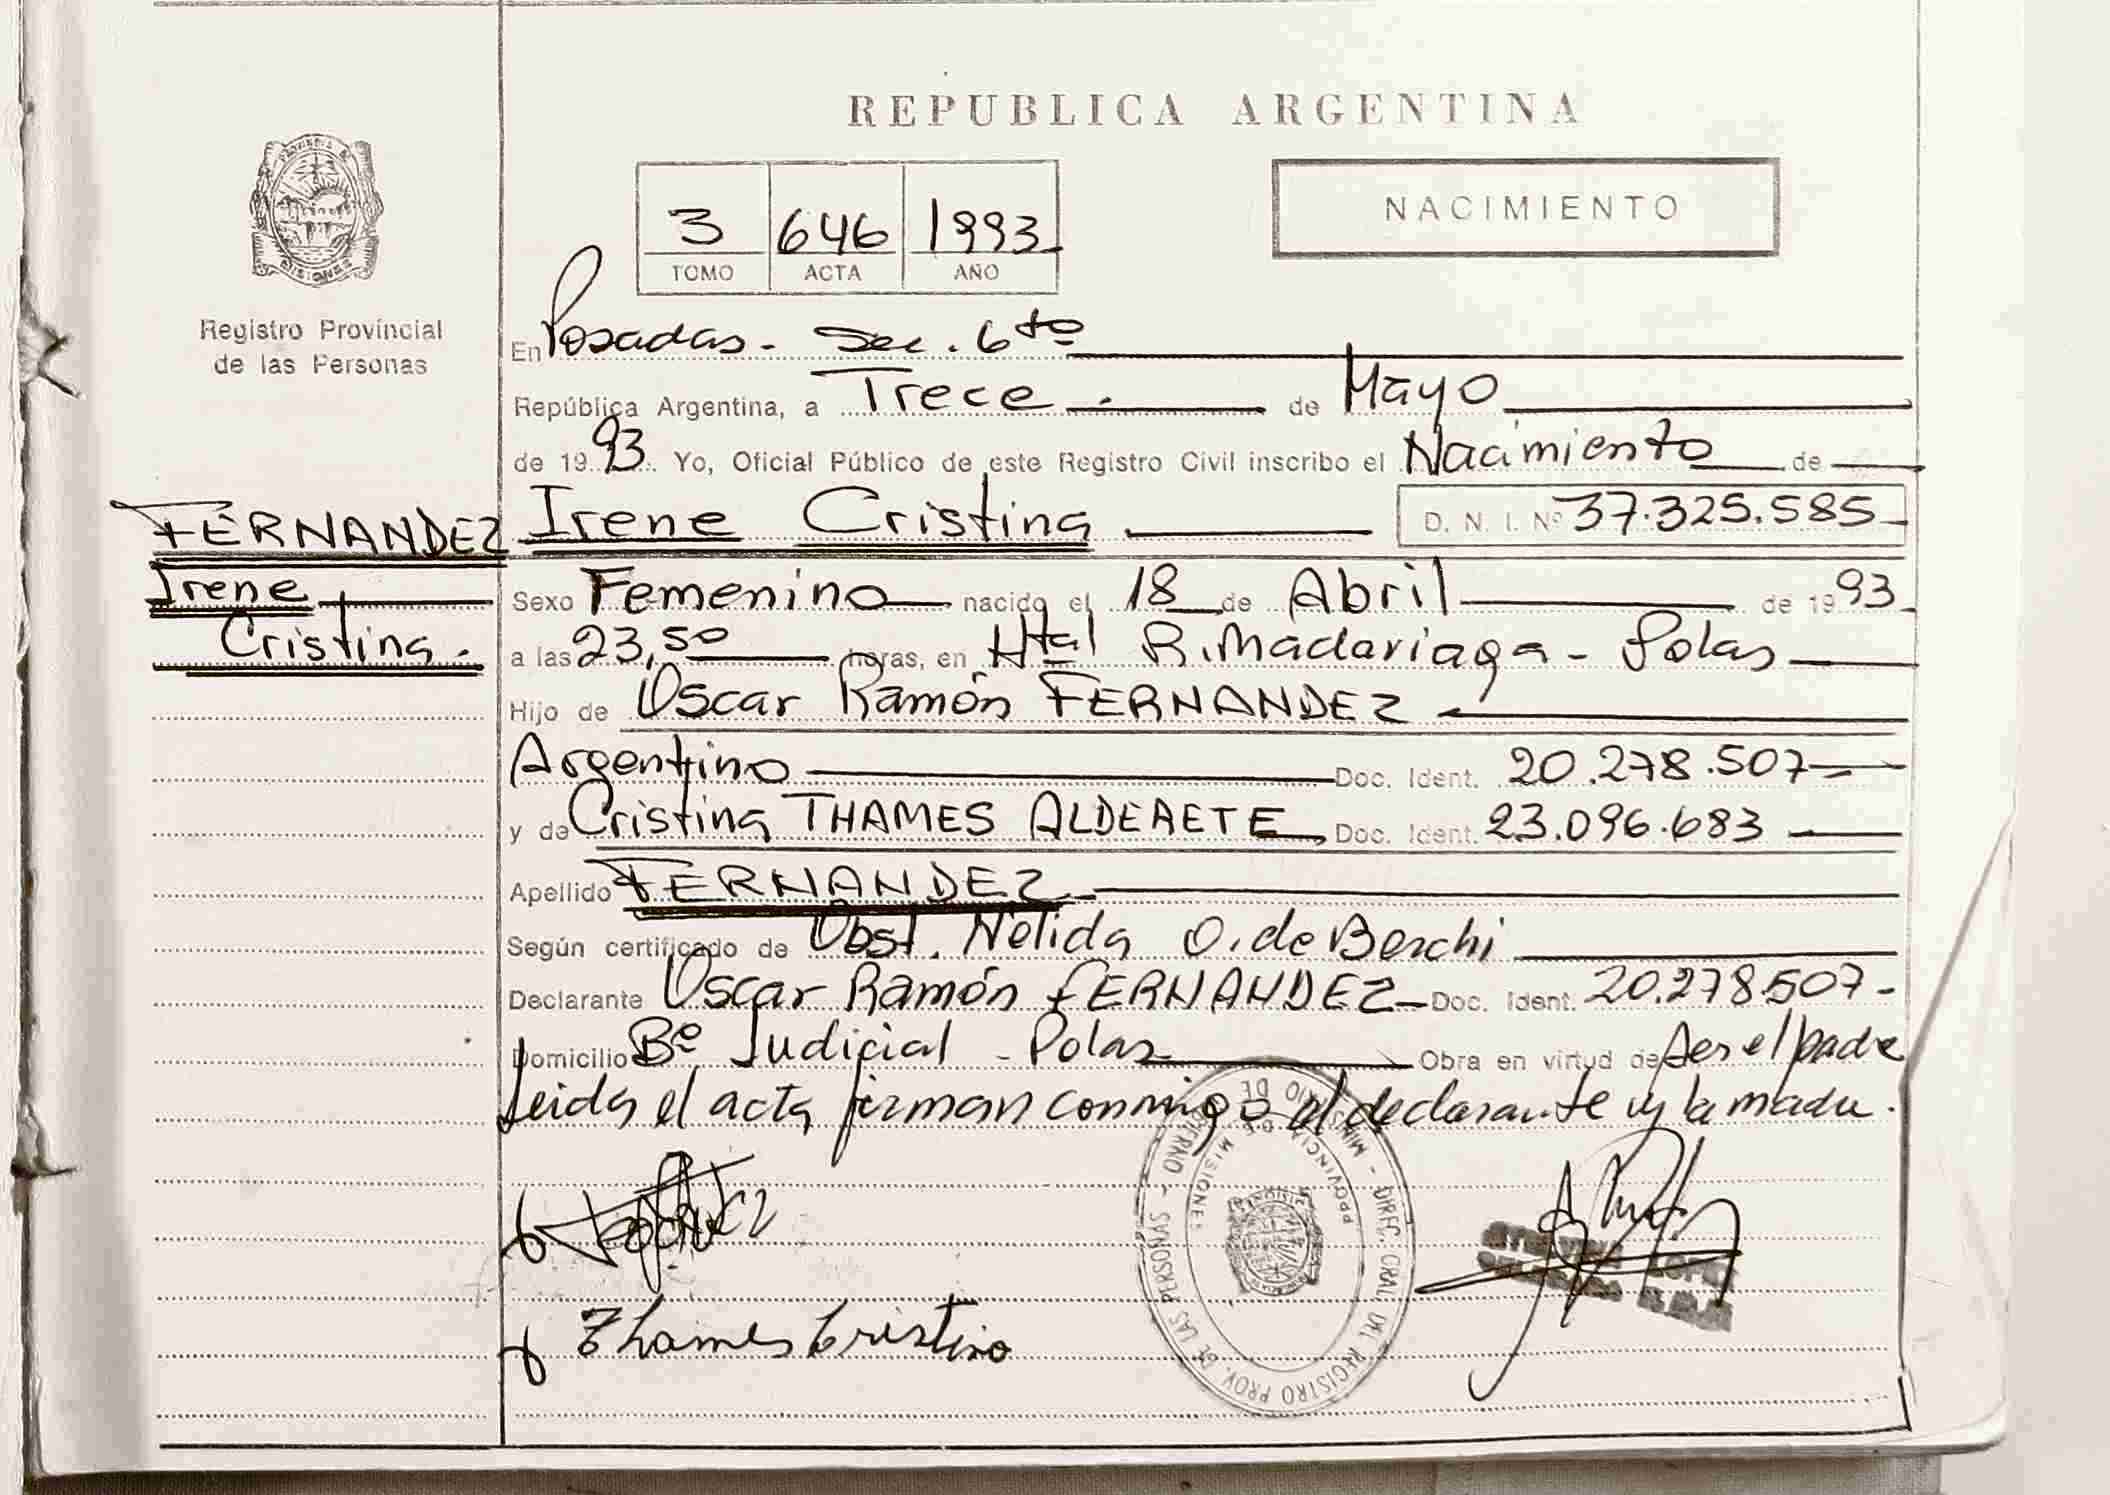 REPUBLICA ARGENTINA
NACIMIENTO
3 646 1993
TOMO ACTA AÑO
Registro Provincial
de las Personas
En Posadas - Sec. 6to
República Argentina, a Trece de Mayo
de 1993 Yo, Oficial Público de este Registro Civil inscribo el Nacimiento de
FERNANDEZ Irene Cristina D. N. I. Nº 37.325.585
Irene
Cristina.
Sexo Femenino nacido el 18 de Abril de 1993
a las 23,50 horas, en Htal R. Madariaga - Pdas
Hijo de Oscar Ramón FERNANDEZ
Argentino Doc. Ident. 20.278.507
y de Cristina THAMES ALDERETE Doc. Ident. 23.096.683
Apellido FERNANDEZ
Según certificado de Obst. Nélida O. de Berchi
Declarante Oscar Ramón FERNANDEZ Doc. Ident. 20.278.507-
Domicilio Bº Judicial - Pdas Obra en virtud de ser el padre
Leida el acta firman conmigo el declarante y la madre.
Thames Cristina
PROVINCIA DE MISIONES
MINISTERIO DE GOBIERNO - DIREC. GRAL. DEL REGISTRO PROV. DE LAS PERSONAS